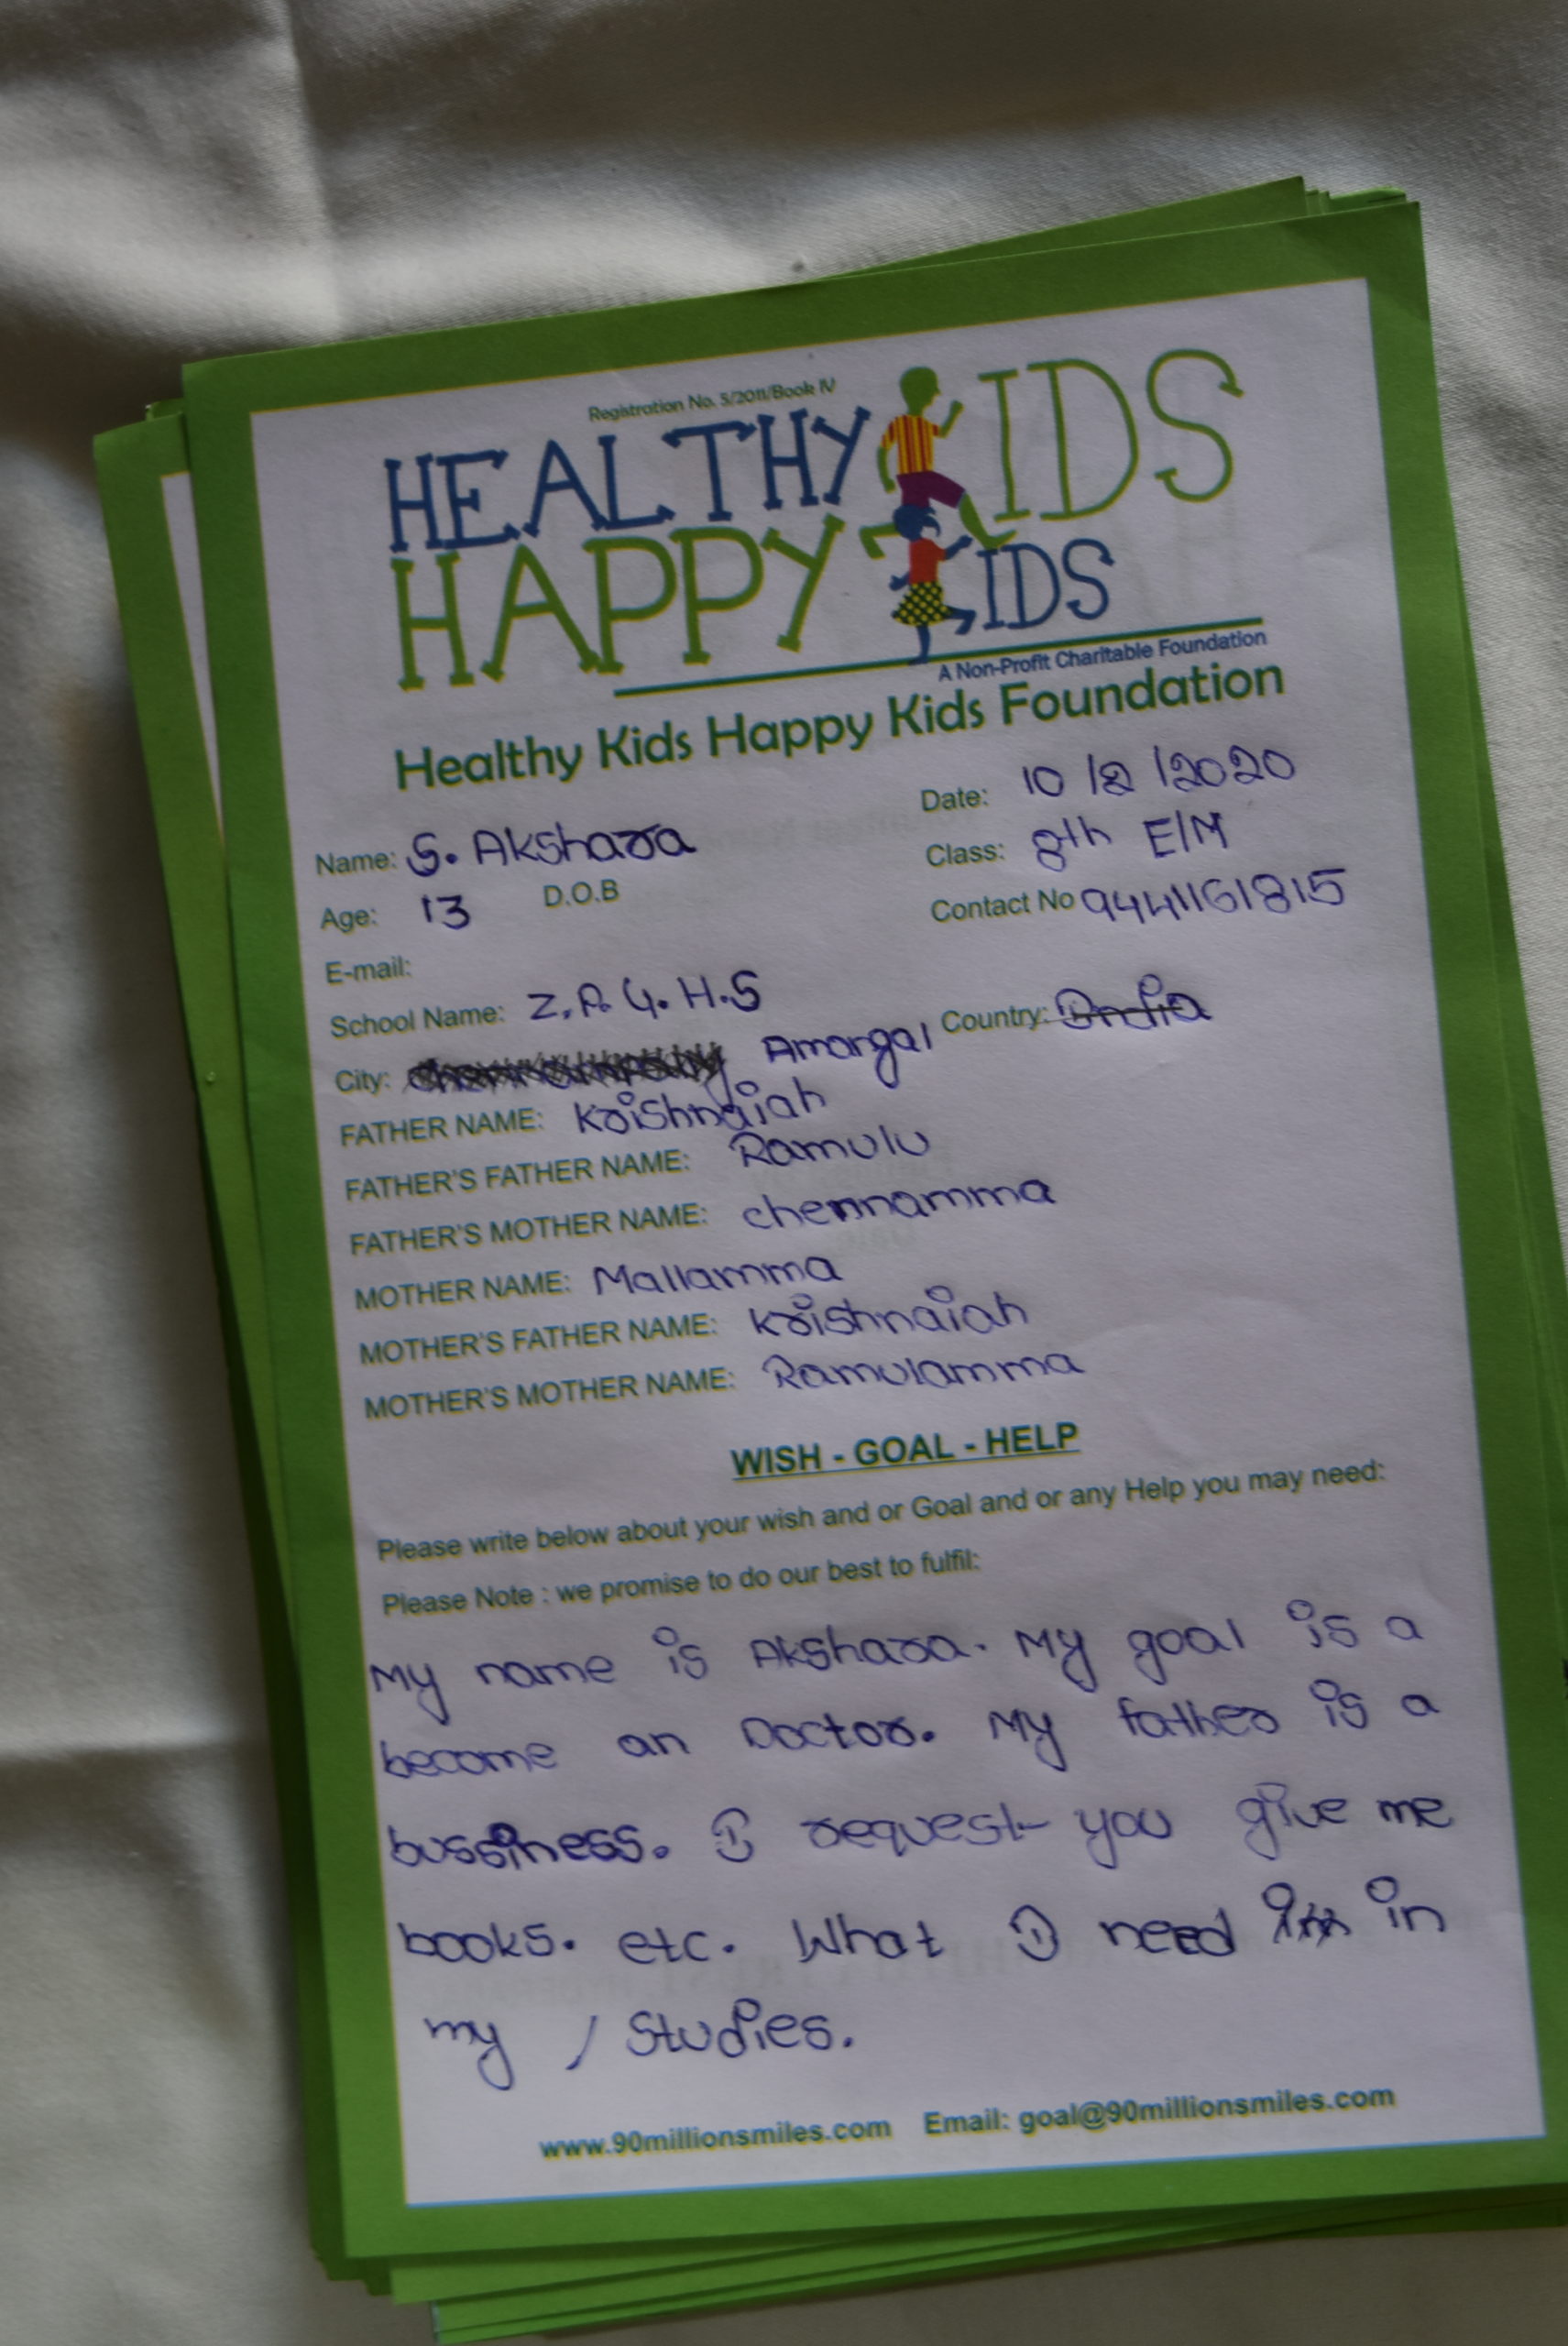 Registration No. 5/2011/Book IV
HEALTHY KIDS
HAPPY KIDS
A Non-Profit Charitable Foundation
Healthy Kids Happy Kids Foundation
Date: 10/2/2020
Name: S. Akshara
Class: 8th E/M
Age: 13 D.O.B
Contact No 9441161815
E-mail:
School Name: Z.P.G.H.S
City: Amargal Country: India
FATHER NAME: Krishnaiah
FATHER'S FATHER NAME: Ramulu
FATHER'S MOTHER NAME: chennamma
MOTHER NAME: Mallamma
MOTHER'S FATHER NAME: Krishnaiah
MOTHER'S MOTHER NAME: Ramulamma
WISH - GOAL - HELP
Please write below about your wish and or Goal and or any Help you may need:
Please Note : we promise to do our best to fulfil:
My name is Akshara. My goal is a
become an Doctor. My father is a
bussiness. I request you give me
books. etc. What I need in
my / Studies.
www.90millionsmiles.com Email: goal@90millionsmiles.com